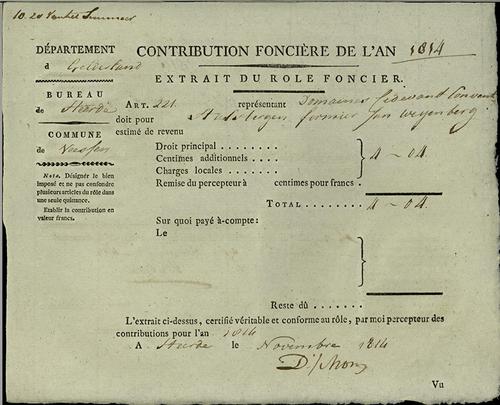 10. 20
DÉPARTEMENT
d Gelderland
CONTRIBUTION FONCIÈRE DE L'AN 1814
EXTRAIT DU ROLE FONCIER.
BUREAU
de
ART. 221. représentant Domaines Cidevand Convent
COMMUNE
de Vassen
doit pour fermier Jan Weyenberg
estimé de revenu
Nota. Désigner le bien
imposé et ne pas confondre
plusieurs articles du rôle dans
une seule quittance.
Etablir la contribution en
valeur francs.
Droit principal . . . . . .
Centimes additionnels . . . .
Charges locales . . . . . .
} 4 ~ 04.
Remise du percepteur à centimes pour francs .
TOTAL . . . . . . . . 4 ~ 04.
Sur quoi payé à-compte:
Le
Reste dû . . . . . . .
L'extrait ci-dessus, certifié véritable et conforme au rôle, par moi percepteur des
contributions pour l'an 1814
A le Novembre 1814
Vu